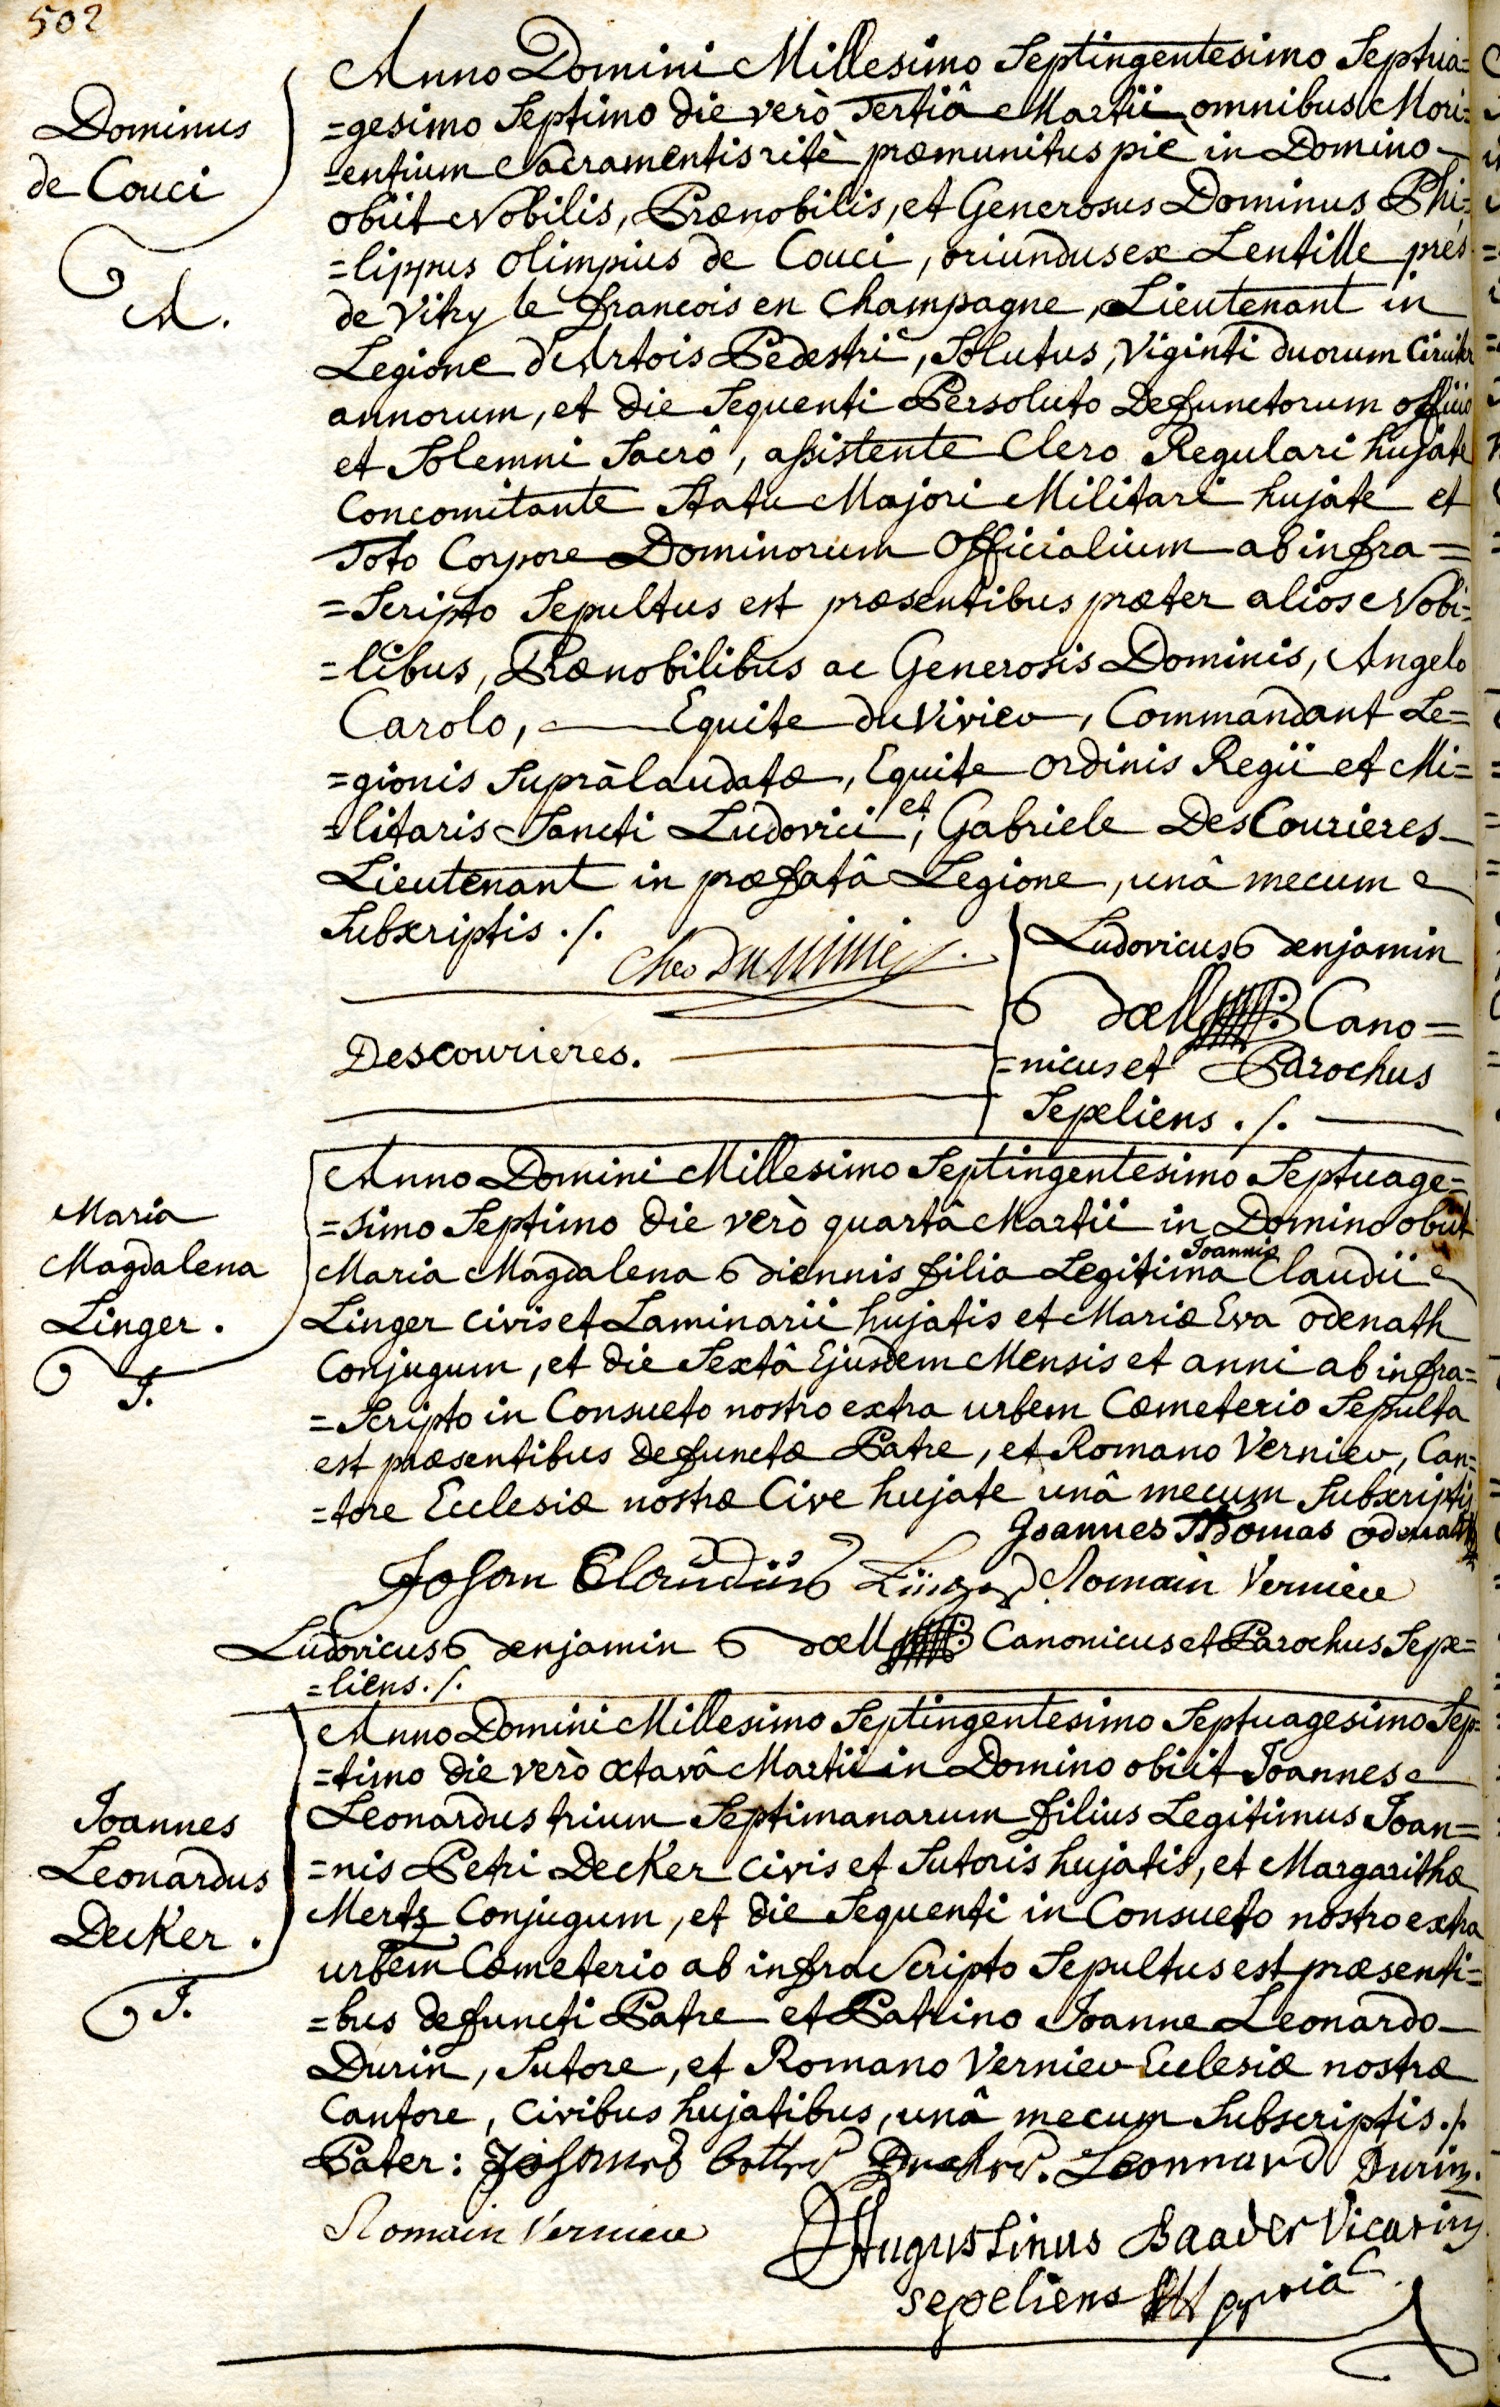 502
Dominus
de Couci
A.
Anno Domini Millesimo Septingentesimo Septua=
=gesimo Septimo die verò Tertiâ Martii omnibus Mori=
=entium Sacramentis ritè præmunitus piè in Domino
obiit Nobilis, Prænobilis, et Generosus Dominus Phi=
=lippus Olimpius de Couci, oriundus ex Lentille près
de Vitry le francois en Champagne, Lieutenant in
Legione d'Artois Pedestri, Solutus, Viginti duorum Circiter
annorum, et die Sequenti Persoluto Defunctorum officio
et Solemni Sacrô, assistente Clero Regulari hujate
Concomitante Statu Majori Militari hujate et
Toto Corpore Dominorum Officialium ab infra=
=Scripto Sepultus est præsentibus præter alios Nobi=
=libus, Prænobilibus ac Generosis Dominis, Angelo
Carolo, Equite du Vivier, Commandant Le=
=gionis Supràlaudatæ, Equite Ordinis Regii et Mi=
=litaris Sancti Ludovici et, Gabriele DesCourieres
Lieutenant in præfatâ Legione, unâ mecum
Subscriptis ./.
Descourieres.
Ludovicus Benjamin
Cano=
=nicus et Parochus
Sepeliens ./.
Maria
Magdalena
Linger.
J.
Anno Domini Millesimo Septingentesimo Septuage=
=simo Septimo die verò quartâ Martii in Domino obiit
Maria Magdalena Biennis filia Legitima Joannis Claudii
Linger civis et Laminarii hujatis et Mariæ Eva Odenath
Conjugum, et die Sextâ Ejusdem Mensis et anni ab infra=
=Scripto in Consueto nostro extra urbem Cœmeterio Sepulta
est præsentibus defunctæ Patre, et Romano Vernier, Can=
=tore Ecclesiæ nostræ Cive hujate unâ mecum Subscriptis
Joannes Thomas odenath
Johan Claudius Linger Romain Vernier
Ludovicus Benjamin Canonicus et Parochus Sepe=
=liens ./.
Joannes
Leonardus
Decker.
J.
Anno Domini Millesimo Septingentesimo Septuagesimo Sep=
=timo die verò octavâ Martii in Domino obiit Joannes
Leonardus trium Septimanarum filius Legitimus Joan=
=nis Petri Decker civis et Sutoris hujatis, et Margarithæ
Mertz Conjugum, et die Sequenti in Consueto nostro extra
urbem Cœmeterio ab infra Scripto Sepultus est præsenti=
=bus defuncti Patre et Patrino Joanne Leonardo
Durin, Sutore, et Romano Vernier Ecclesiæ nostræ
Cantore, Civibus hujatibus, unâ mecum Subscriptis ./.
Pater: Leonnard Durin.
Romain Vernier
Augustinus Baader Vicarius
sepeliens